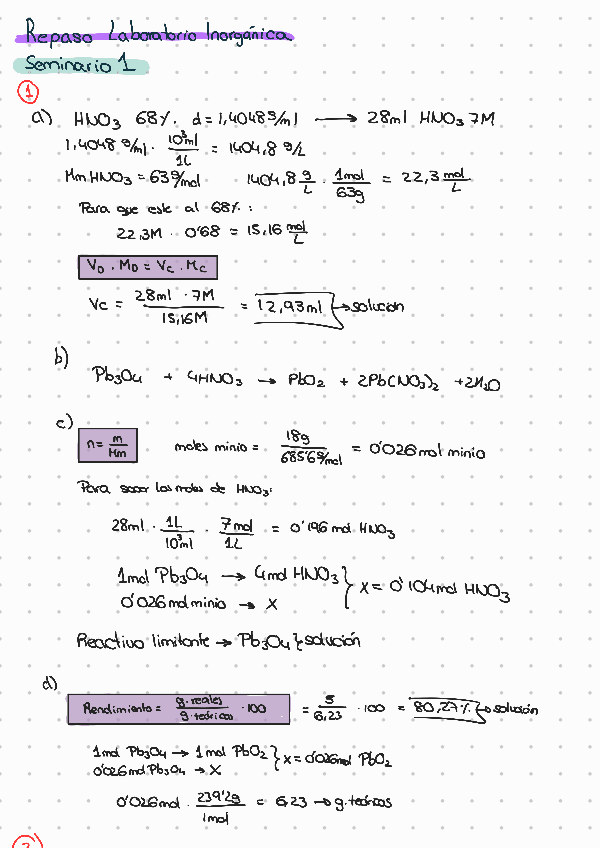 Repaso Laboratorio Inorgánica
Seminario 1
1
a) HNO3 68%. d = 1,4048 g/ml → 28ml HNO3 7M
1,4048 g/ml · 10³ml / 1L = 1404,8 g/L
Mm HNO3 = 63 g/mol 1404,8 g/L · 1mol / 63g = 22,3 mol/L
Para que este al 68%:
22,3M · 0'68 = 15,16 mol/L
VD · MD = Vc · Mc
Vc = 28ml · 7M / 15,16M = 12,93ml → solución
b)
Pb3O4 + 4HNO3 → PbO2 + 2Pb(NO3)2 + 2H2O
c)
n = m / Mm moles minio = 18g / 685'6 g/mol = 0'026 mol minio
Para sacar los moles de HNO3:
28ml · 1L / 10³ml · 7mol / 1L = 0'196 mol HNO3
1mol Pb3O4 → 4mol HNO3
0'026 mol minio → X } X = 0'104 mol HNO3
Reactivo limitante → Pb3O4 } solución
d)
Rendimiento = g. reales / g. teóricos · 100 = 5 / 6,23 · 100 = 80,27% → solución
1mol Pb3O4 → 1mol PbO2
0'026 mol Pb3O4 → X } X = 0'026 mol PbO2
0'026 mol · 239'2g / 1mol = 6,23 → g. teóricos
2